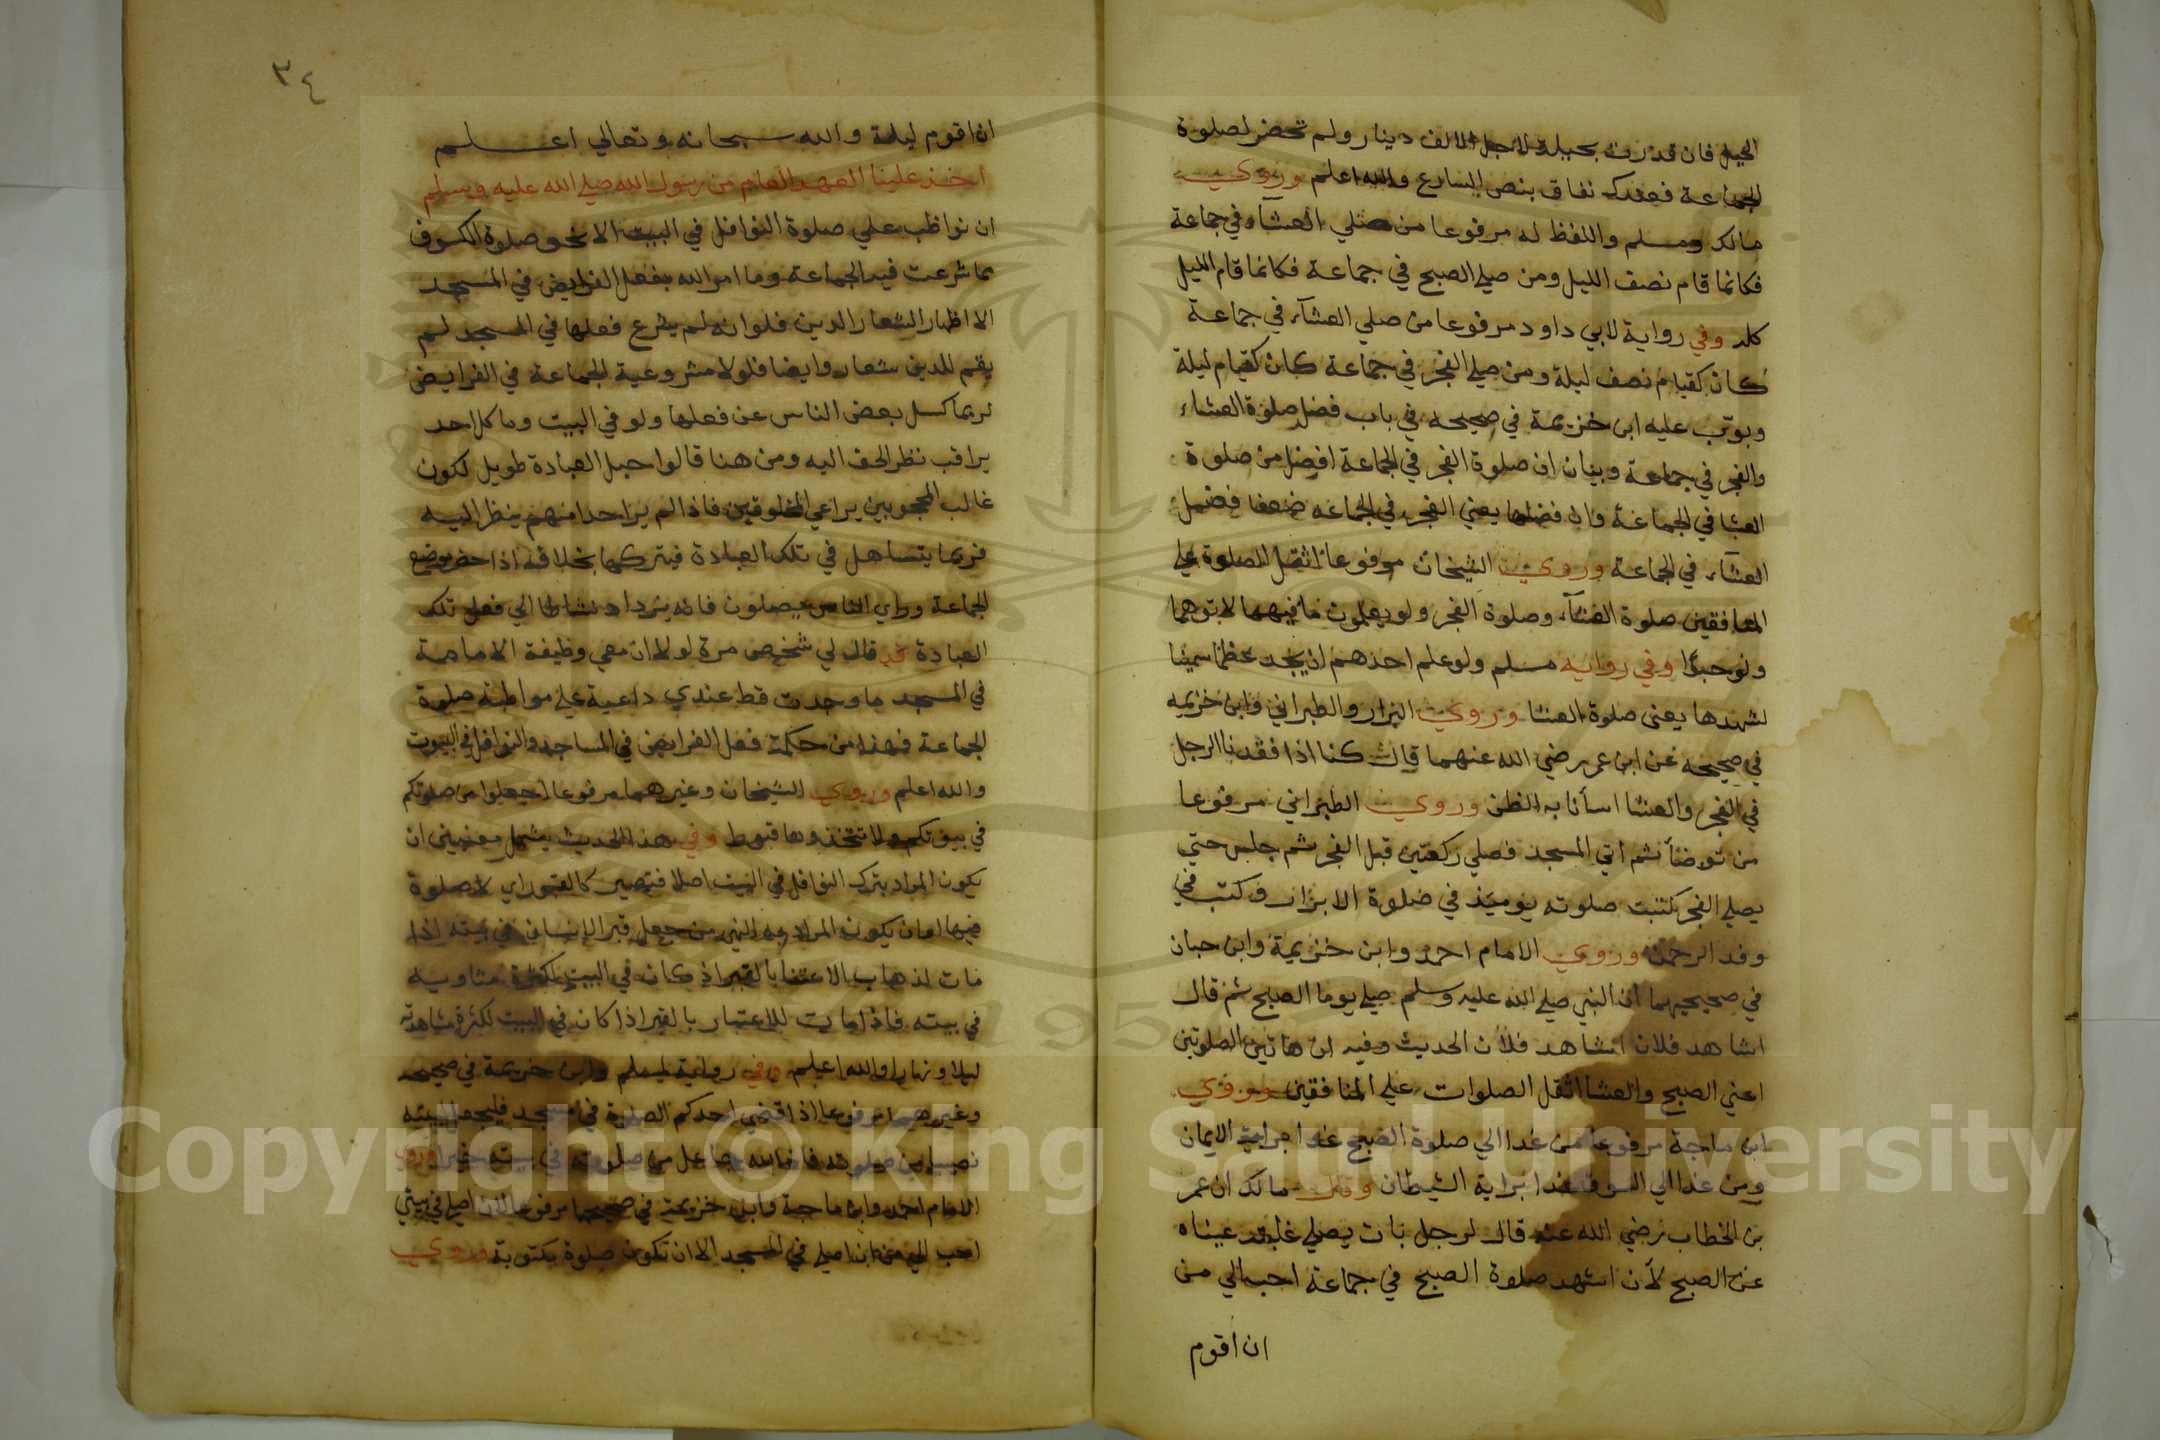 الحيل فان قدرت بحيلة لاجل الالف دينار ولم تحضر لصلوة
الجماعة فعندك نفاق بنص الشارع والله اعلم وروي
مالك ومسلم واللفظ له مرفوعا من صلي العشآء في جماعة
فكانما قام نصف الليل ومن صلي الصبح في جماعة فكانما قام الليل
كله وفي رواية لابي داود مرفوعا من صلي العشآء في جماعة
كان كقيام نصف ليلة ومن صلي الفجر في جماعة كان كقيام ليلة
وبوب عليه ابن خزيمة في صحيحه في باب فضل صلوة العشاء
والفجر في جماعة وبيان ان صلوة الفجر في الجماعة افضل من صلوة
العشا في الجماعة وان فضلها يعني الفجر في الجماعه ضعفا فضل
العشآء في الجماعة وروي الشيخان مرفوعا اثقل الصلوة علي
المنافقين صلوة العشآء وصلوة الفجر ولو يعلمون ما فيهما لاتوهما
ولو حبوا وفي رواية مسلم ولو علم احدهم ان يجد عظما سمينا
لشهدها يعني صلوة العشا وروي البزار والطبراني وابن خزيمه
في صحيحه عن ابن عمر رضي الله عنهما قال كنا اذا فقدنا الرجل
في الفجر والعشا اسأنا به الظن وروي الطبراني مرفوعا
من توضأ ثم اتي المسجد فصلي ركعتين قبل الفجر ثم جلس حتي
يصلي الفجر كتبت صلوته يوميذ في صلوة الابرار وكتب في
وفد الرحمن وروي الامام احمد وابن خزيمة وابن حبان
في صحيحيهما ان النبي صلي الله عليه وسلم صلي يوما الصبح ثم قال
اشاهد فلان اشاهد فلان الحديث وفيه ان هاتين الصلوتين
اعني الصبح والعشا اثقل الصلوات علي المنافقين وروي
ابن ماجة مرفوعا من غدا الي صلوة الصبح غدا براية الايمان
ومن غدا الي السوق غدا براية الشيطان وقال مالك ان عمر
بن الخطاب رضي الله عنه قال لرجل بات يصلي غلبته عيناه
عن الصبح لأن اشهد صلوة الصبح في جماعة احب الي من
ان اقوم
٣٤
ان اقوم ليلة والله سبحانه وتعالي اعلم
اخذ علينا العهد العام من رسول الله صلي الله عليه وسلم
ان نواظب علي صلوة النوافل في البيت الا نحو صلوة الكسوف
مما شرعت فيه الجماعة وما امر الله بفعل الفرايض في المسجد
الا اظهار الشعار الدين فلو انه لم يشرع فعلها في المسجد لم
يقم للدين شعار وايضا فلولا مشروعية الجماعة في الفرايض
لربما كسل بعض الناس عن فعلها ولو في البيت وما كل احد
يراقب نظر الحق اليه ومن هنا قالوا حبل العبادة طويل لكون
غالب المحجوبين يراعي المخلوقين فاذا لم ير احدا منهم ينظر اليه
فربما يتساهل في تلك العبادة فيتركها بخلافه اذا حضر موضع
الجماعة وراي الناس يصلون فانه يزداد نشاطا الي فعل تلك
العبادة قد قال لي شخص مرة لولا ان معي وظيفة الامامة
في المسجد ما وجدت قط عندي داعية علي مواظبة صلوة
الجماعة فهذا من حكمة فعل الفرايض في المساجد والنوافل في البيوت
والله اعلم وروي الشيخان وغيرهما مرفوعا اجعلوا من صلوتكم
في بيوتكم ولا تتخذوها قبورا وفي هذا الحديث يشمل معنيين ان
يكون المراد بترك النوافل في البيت اصلا فتصير كالقبور اي لا صلوة
فيها او ان يكون المراد به النهي من جعل قبر الانسان في بيته اذا
مات لذهاب الاعتنا بالقبر اذ كان في البيت
في بيته فاذا مات للاعتبار بالقبر اذا كان في البيت لكثرة مشاهدته
ليلا ونهارا والله اعلم وفي رواية لمسلم وابن خزيمة في صحيحه
وغيرهما مرفوعا اذا قضي احدكم الصلوة في مسجد فليجعل لبيته
نصيبا من صلوته فان الله جاعل من صلوته في بيته خيرا وروي
الامام احمد وابن ماجة وابن خزيمة في صحيحهما مرفوعا لان اصلي في بيتي
احب الي من ان اصلي في المسجد الا ان تكون صلوة مكتوبة وروي
Copyright © King Saud University
1957